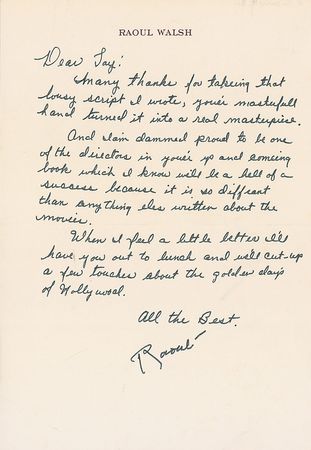 RAOUL WALSH
Dear Jay:
Many thanks for takeing that
lousy script I wrote, you're masterfull
hand turned it into a real masterpiese.
And I am dammed proud to be one
of the directors in you're up and comeing
book which I know will be a hell of a
success because it is so diffrent
than anything eles written about the
movies.
When I feel a little better I'll
have you out to lunch and we'll cut-up
a few touches about the golden days
of Hollywood.
All the Best.
Raoul